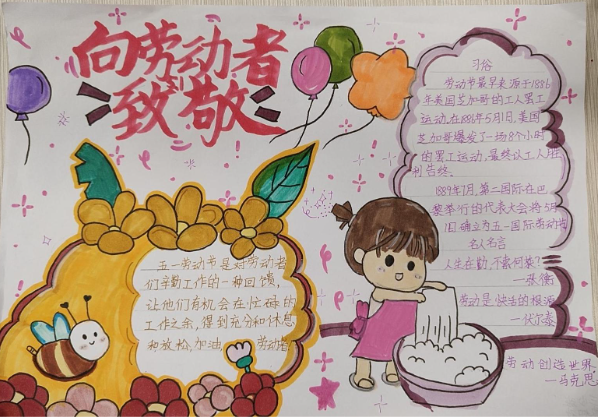 向劳动者
致敬
五一劳动节是对劳动者
们辛勤工作的一种回馈,
让他们有机会在忙碌的
工作之余,得到充分和休息
和放松,加油 劳动者
习俗
劳动节最早来源于1886
年美国芝加哥的工人罢工
运动,在1886年5月1日,美国
芝加哥爆发了一场8个小时
的罢工运动,最终以工人胜
利告终。
1889年7月,第二国际在巴
黎举行的代表大会将5月
1日确立为五一国际劳动节
名人名言
人生在勤,不索何获?
—张衡
劳动是快活的根源
—伏尔泰
劳动创造世界
—马克思